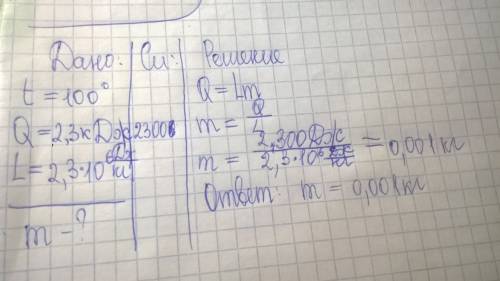 Дано: Си: Решение
t = 100°
Q = 2,3 кДж 2300
L = 2,3·10⁶ Дж/кг
m - ?
Q = Lm
m = Q/L
m = 2,300Дж / 2,3·10⁶ Дж/кг = 0,001 кг
Ответ: m = 0,001 кг